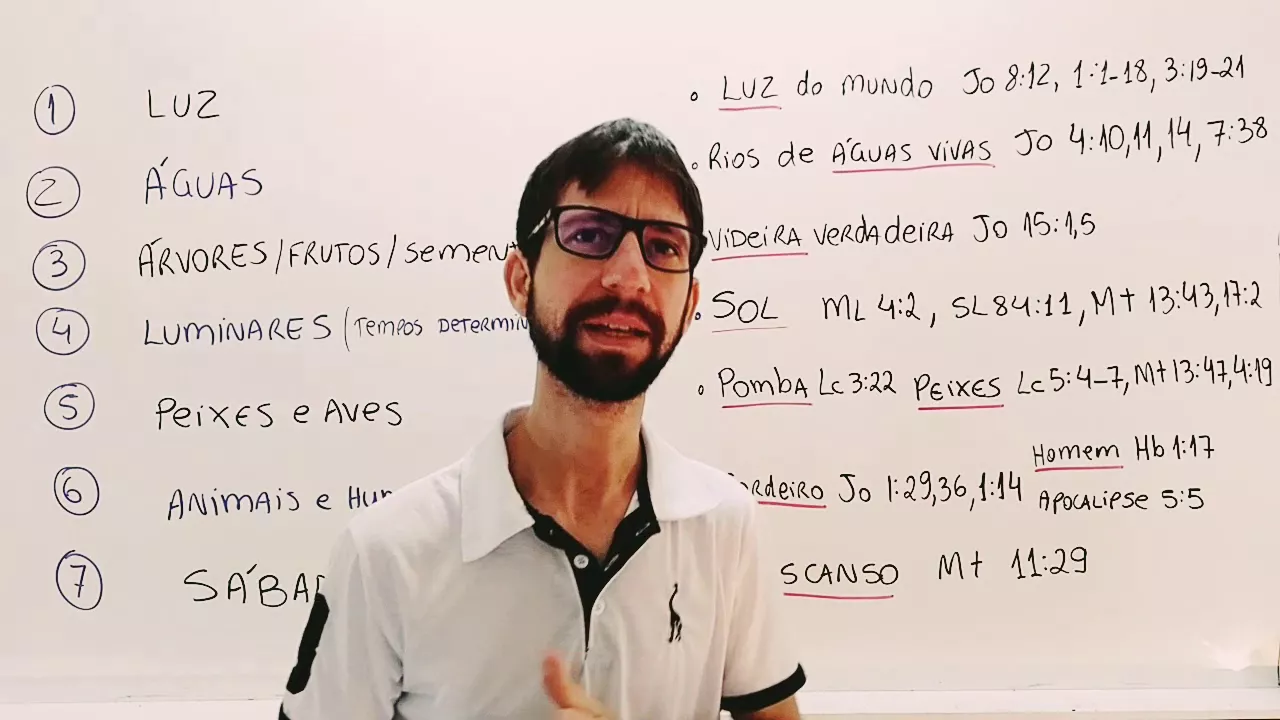 1 LUZ
LUZ do mundo Jo 8:12, 1:1-18, 3:19-21
2 ÁGUAS
Rios de ÁGUAS VIVAS Jo 4:10,11,14, 7:38
3 ÁRVORES/FRUTOS/Sement
VIDEIRA VERDADEIRA Jo 15:1,5
4 LUMINARES (TEMPOS DETERMIN
SOL ML 4:2, SL 84:11, Mt 13:43,17:2
5 Peixes e Aves
Pomba Lc 3:22 PEIXES Lc 5:4-7, Mt 13:47,4:19
6 ANIMAIS e Hum
ordeiro Jo 1:29,36,1:14
Homem Hb 1:17
APOCALIPSE 5:5
7 SÁBAD
SCANSO Mt 11:29